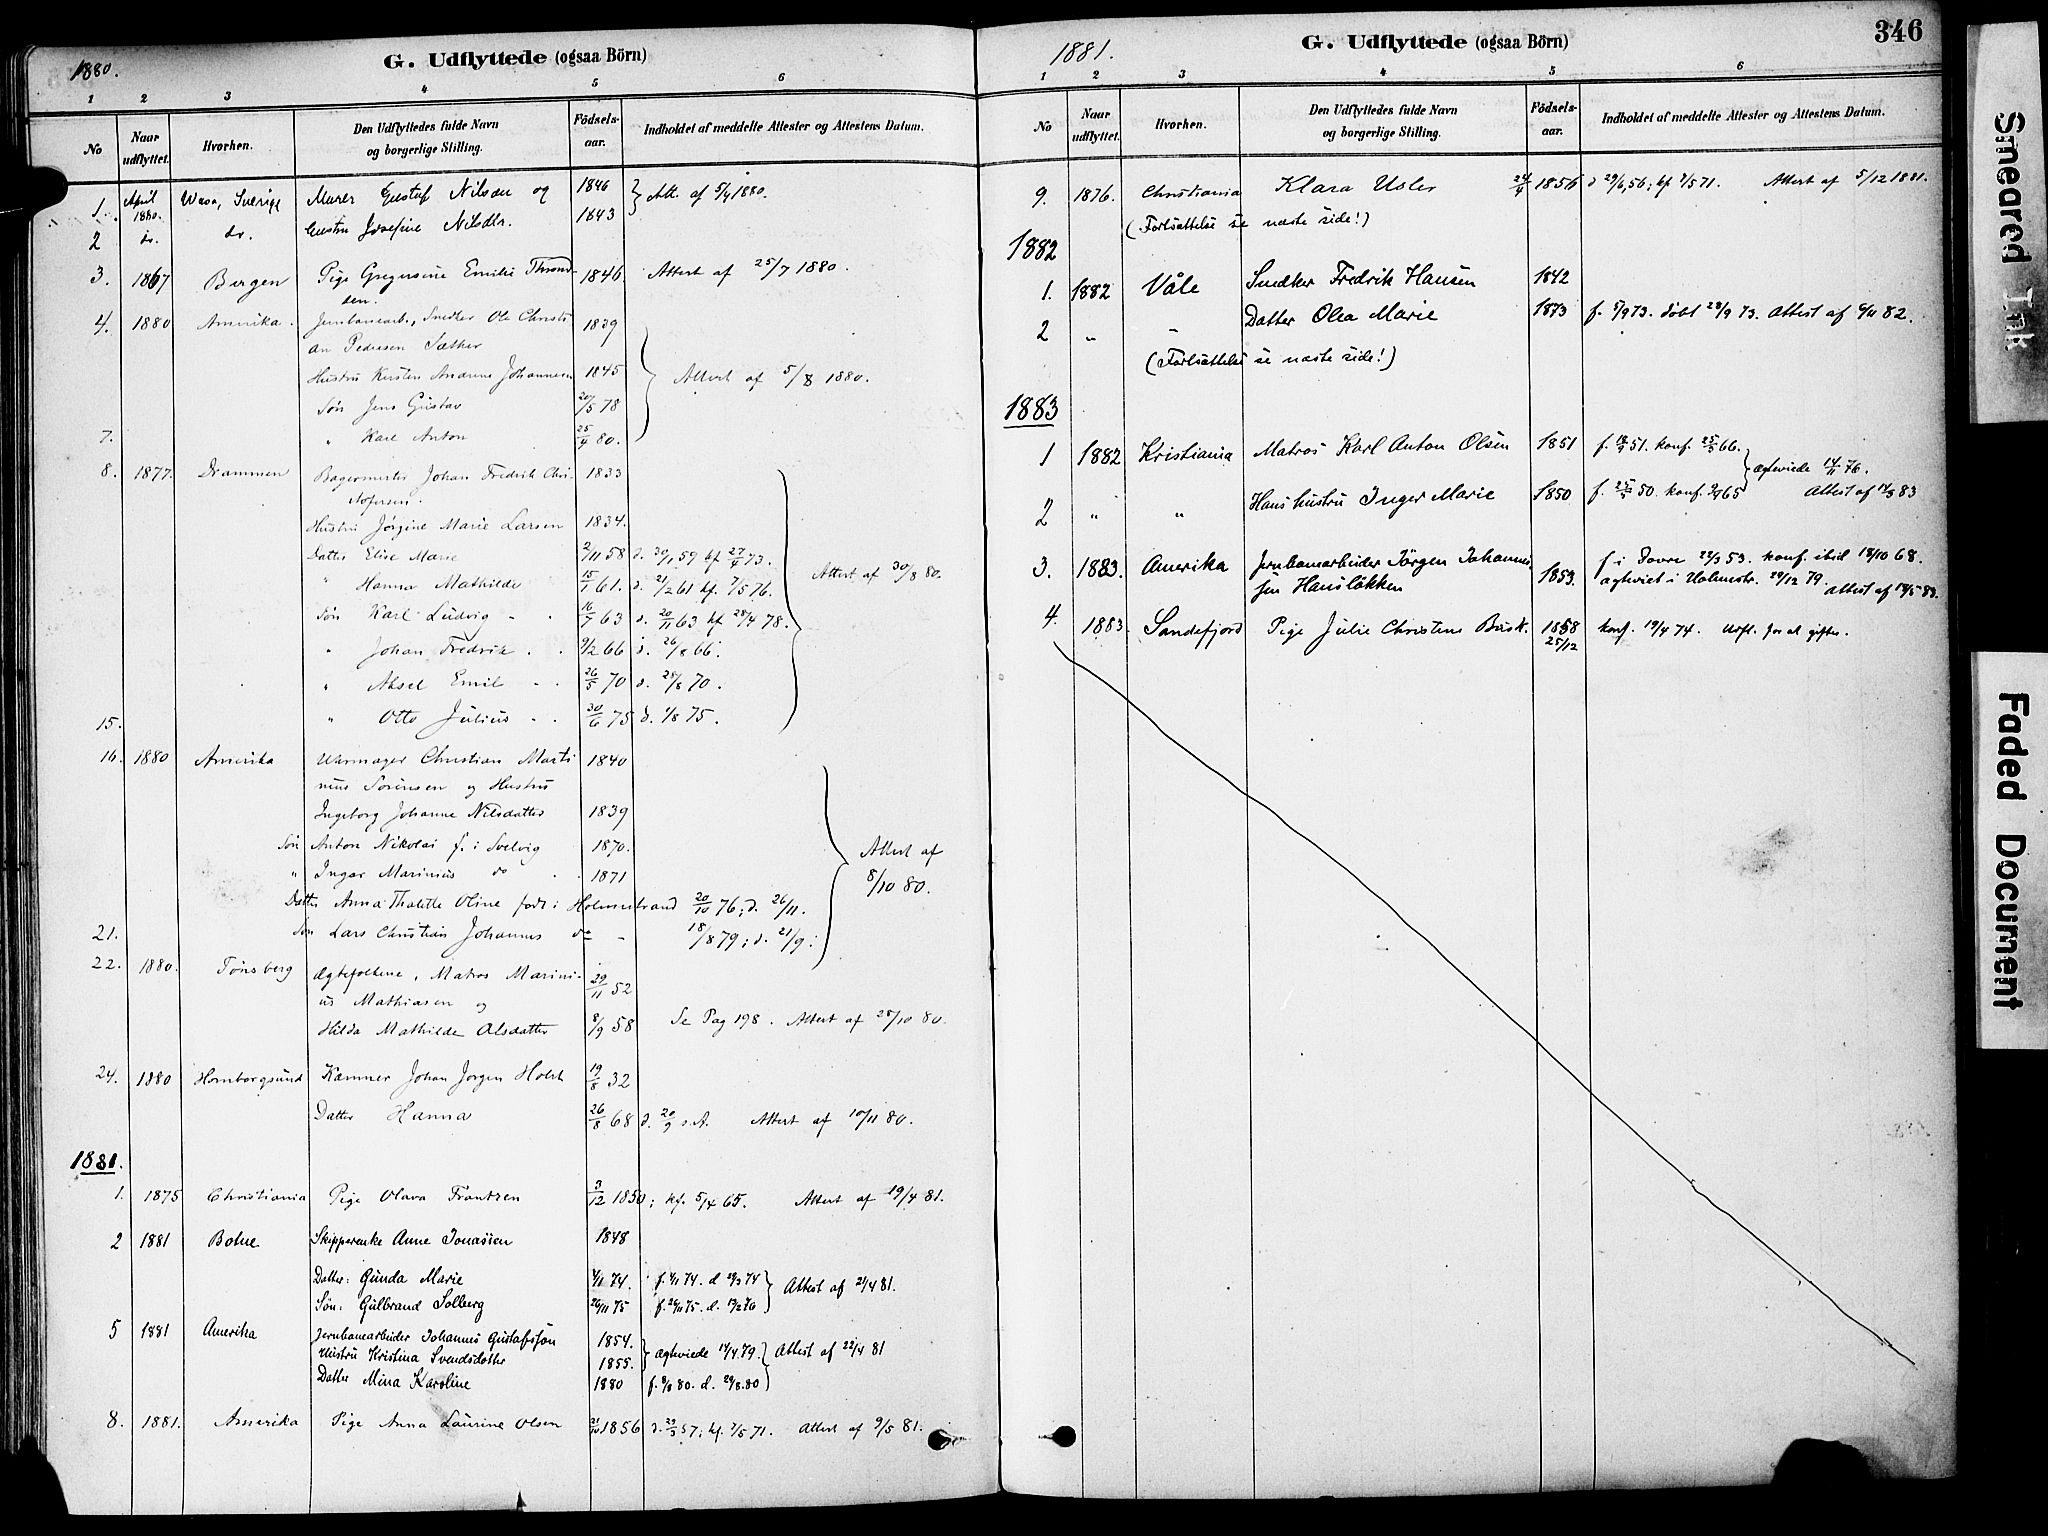 1880.
G. Udflyttede (ogsaa Börn)
1 2 3 4 5 6
No
Naar udflyttet.
Hvorhen.
Den Udflyttedes fulde Navn og borgerlige Stilling.
Födsels-aar.
Indholdet af meddelte Attester og Attestens Datum.
1. April 1880. Wasa, Sverige Murer Gustaf Nilsen og 1846 Att. af 5/4 1880.
2 do. do. Hustru Josefine Nilsdtr. 1843
3. 1867 Bergen Pige Gregersine Emilie Thrond- 1846 Attest af 25/7 1880.
sen.
4. 1880 Amerika. Jernbanearb., Snedker Ole Christi 1839
an Pedersen Sæther
Hustru Kirsten Andrine Johannesen 1845 Attest af 5/8 1880.
Søn Jens Gustav 20/5 78
7. " Karl Anton 25/4 80.
8. 1877. Drammen Bagermester Johan Fredrik Chri- 1833
stofersen.
Hustru Jørgine Marie Larsen 1834.
Datter Elise Marie 2/11 58 d. 30/1 59 kf 27/4 73.
" Hanna Mathilde 15/1 61. d. 21/2 61 kf. 7/5 76. Attest af 30/8 80.
Søn Karl Ludvig 16/7 63 d. 20/11 63 kf 28/4 78.
" Johan Fredrik 9/2 66 d. 26/8 66.
" Aksel Emil 26/5 70 d. 28/8 70.
15. " Otto Julius 30/6 75 d. 1/8 75.
16. 1880 Amerika Uhrmager Christian Marti 1840
nius Sörensen og Hustru
Ingeborg Johanne Nilsdatter 1839
Søn Anton Nikolai f. i Svelvig 1870.
" Ingar Marinius do 1871
Attest af 8/10 80.
Datter Anna Thalette Oline født i Holmestrand 20/10 76; d. 26/11.
21. Søn Lars Christian Johannes do 18/8 79; d. 21/9.
22. 1880. Tønsberg Ægtefolkene, Matros Marini- 29/11 52
us Mathiasen og
Hilda Mathilde Olsdatter 8/9 58 Se Pag 198. Attest af 28/10 80.
24. 1880 Homborgsund Kæmner Johan Jørgen Holst 19/8 32
Datter Hanna 26/8 68 d. 20/9 s.A. Attest af 10/11 80.
1881.
1. 1875 Christiania Pige Olava Frantzen 3/12 1850; kf. 5/4 65. Attest af 19/4 81.
2 1881 Botne Skipperenke Anne Jonassen 1848
Datter: Gunda Marie 4/11 74. f. 4/11 74. d 29/3 74 Attest af 21/4 81.
Søn: Gulbrand Solberg 26/11 75 f. 26/11 75. d. 19/2 76
5 1881 Amerika Jernbanearbeider Johannes Gustafsson 1854.
Hustru Kristina Svendsdotter 1855. ægteviede 14/4 79. Attest af 22/4 81
Datter Mina Karoline 1880 f. 9/8 80. d. 29/8.80
8. 1881. Amerika Pige Anna Laurine Olsen 21/10 1856 d. 29/3 57; kf. 7/5 71. Attest af 9/5 81.
1881.
G. Udflyttede (ogsaa Börn)
346
1 2 3 4 5 6
No
Naar udflyttet.
Hvorhen.
Den Udflyttedes fulde Navn og borgerlige Stilling.
Födsels-aar.
Indholdet af meddelte Attester og Attestens Datum.
9. 1876. Christiania Klara Usler 24/4 1856 d 29/6 56; kf 7/5 71. Attest af 5/12 1881.
(Fortsættelse se næste side!)
1882
1. 1882 Våle Snedker Fredrik Hansen 1842
2 " " Datter Olea Marie 1873 f. 5/9 73. döbt 28/9 73. Attest af 4/11 82.
(Fortsættelse se næste side!)
1883
1 1882 Kristiania Matros Karl Anton Olsen 1851 f. 18/9 51. konf. 25/3 66. ægteviede 14/11 76.
2 " " Hans hustru Inger Marie 1850 f. 25/5 50. konf. 2/7 65 Attest af 14/3 83
3. 1883. Amerika Jernbanearbeider Jörgen Johannes 1853. f. i Dovre 23/3 53. konf. ibid 18/10 68.
sen Hanslökken ægteviet i Holmestr. 29/12 79. attest af 14/5 83.
4. 1883. Sandefjord Pige Julie Christine Busk. 1858 25/12 konf. 19/4 74. Udfl. for at giftes.
Smeared Ink
Faded Document